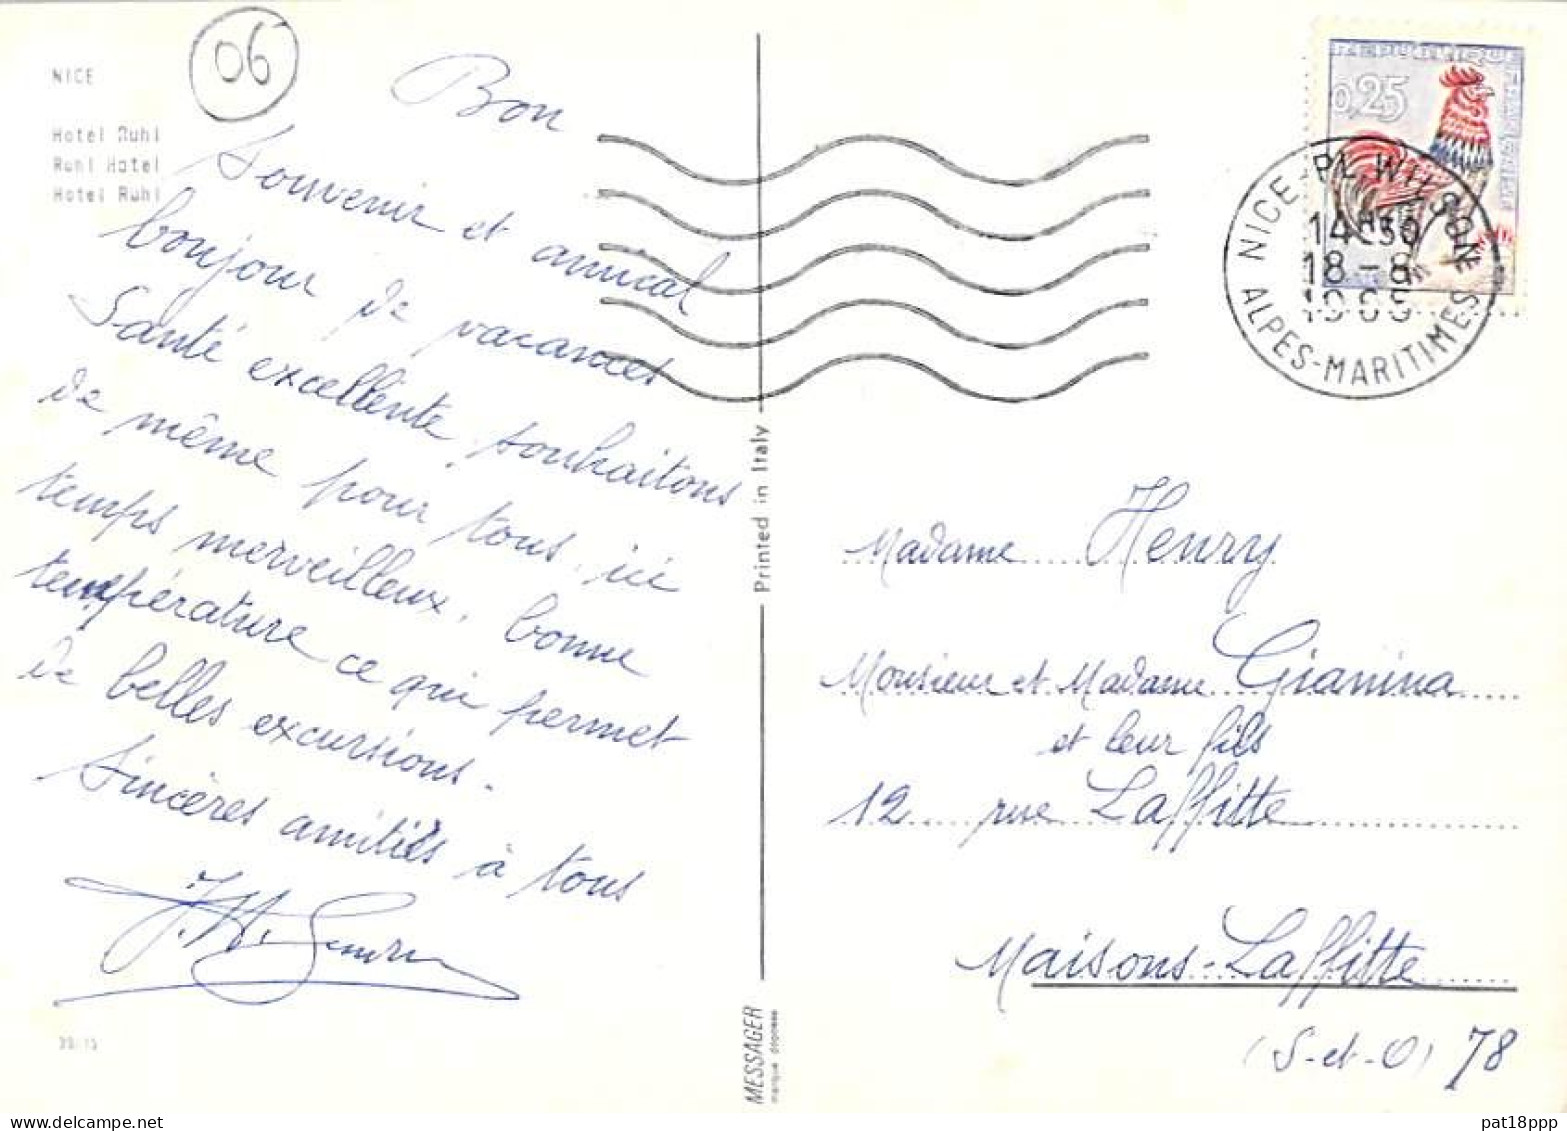 NICE
Hotel Ruhl
Ruhl Hotel
Hotel Ruhl
06
Bon
Souvenir et amical
bonjour de vacances
Santé excellente, souhaitons
de même pour tous. ici
temps merveilleux, bonne
température ce qui permet
de belles excursions.
Sincères amitiés à tous
Printed in Italy
MESSAGER
marque déposée
REPUBLIQUE FRANCAISE
0,25
NICE-PL.WILSON
14H30
18-8
ALPES-MARITIMES
Madame Henry
Monsieur et Madame Gianina
et leur fils
12 rue Laffitte
Maisons-Laffitte
(S-et-O) 78
pat18ppp